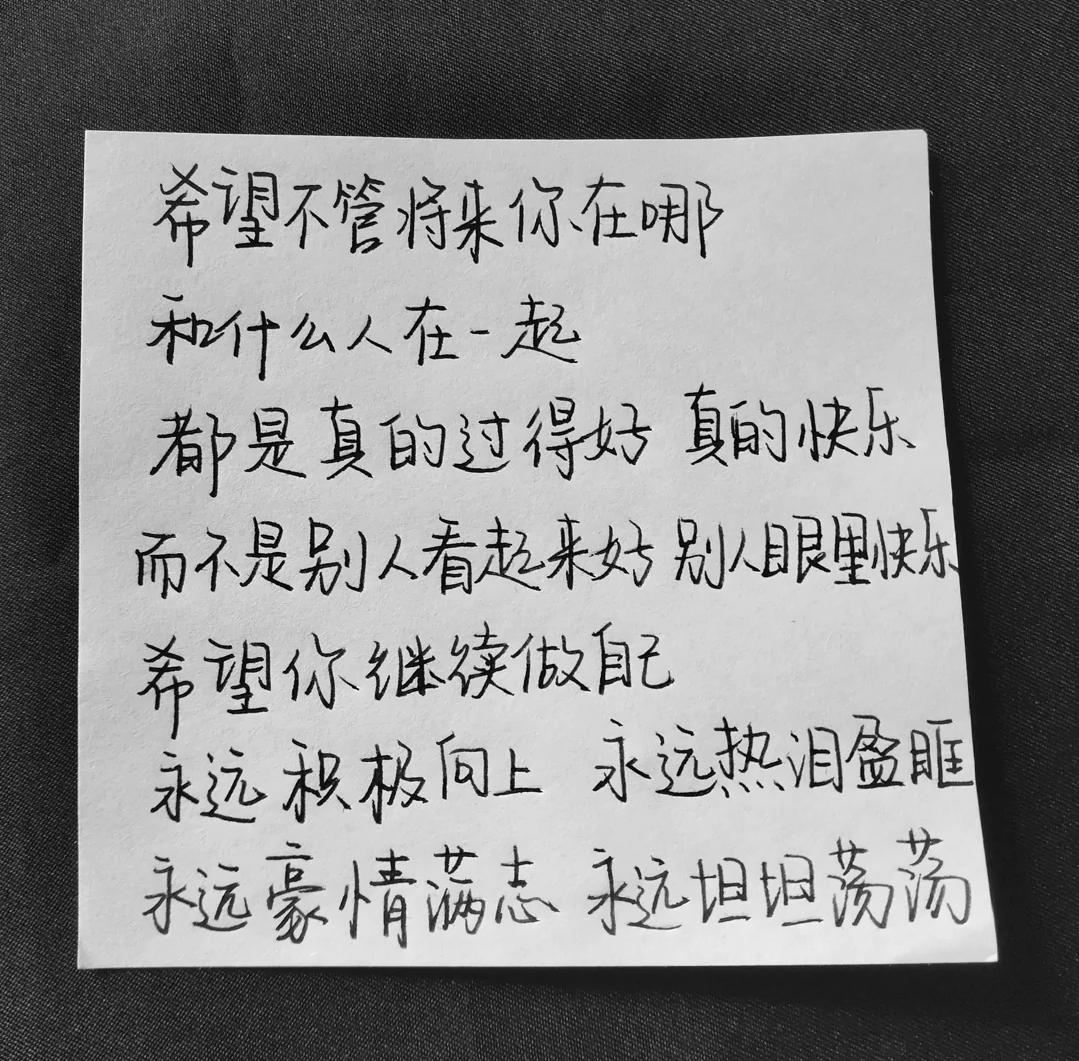 希望不管将来你在哪
和什么人在一起
都是真的过得好 真的快乐
而不是别人看起来好 别人眼里快乐
希望你继续做自己
永远积极向上 永远热泪盈眶
永远豪情满志 永远坦坦荡荡